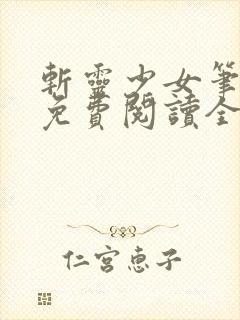 斬靈少女筆
免費閱讀全
仁宮恵子